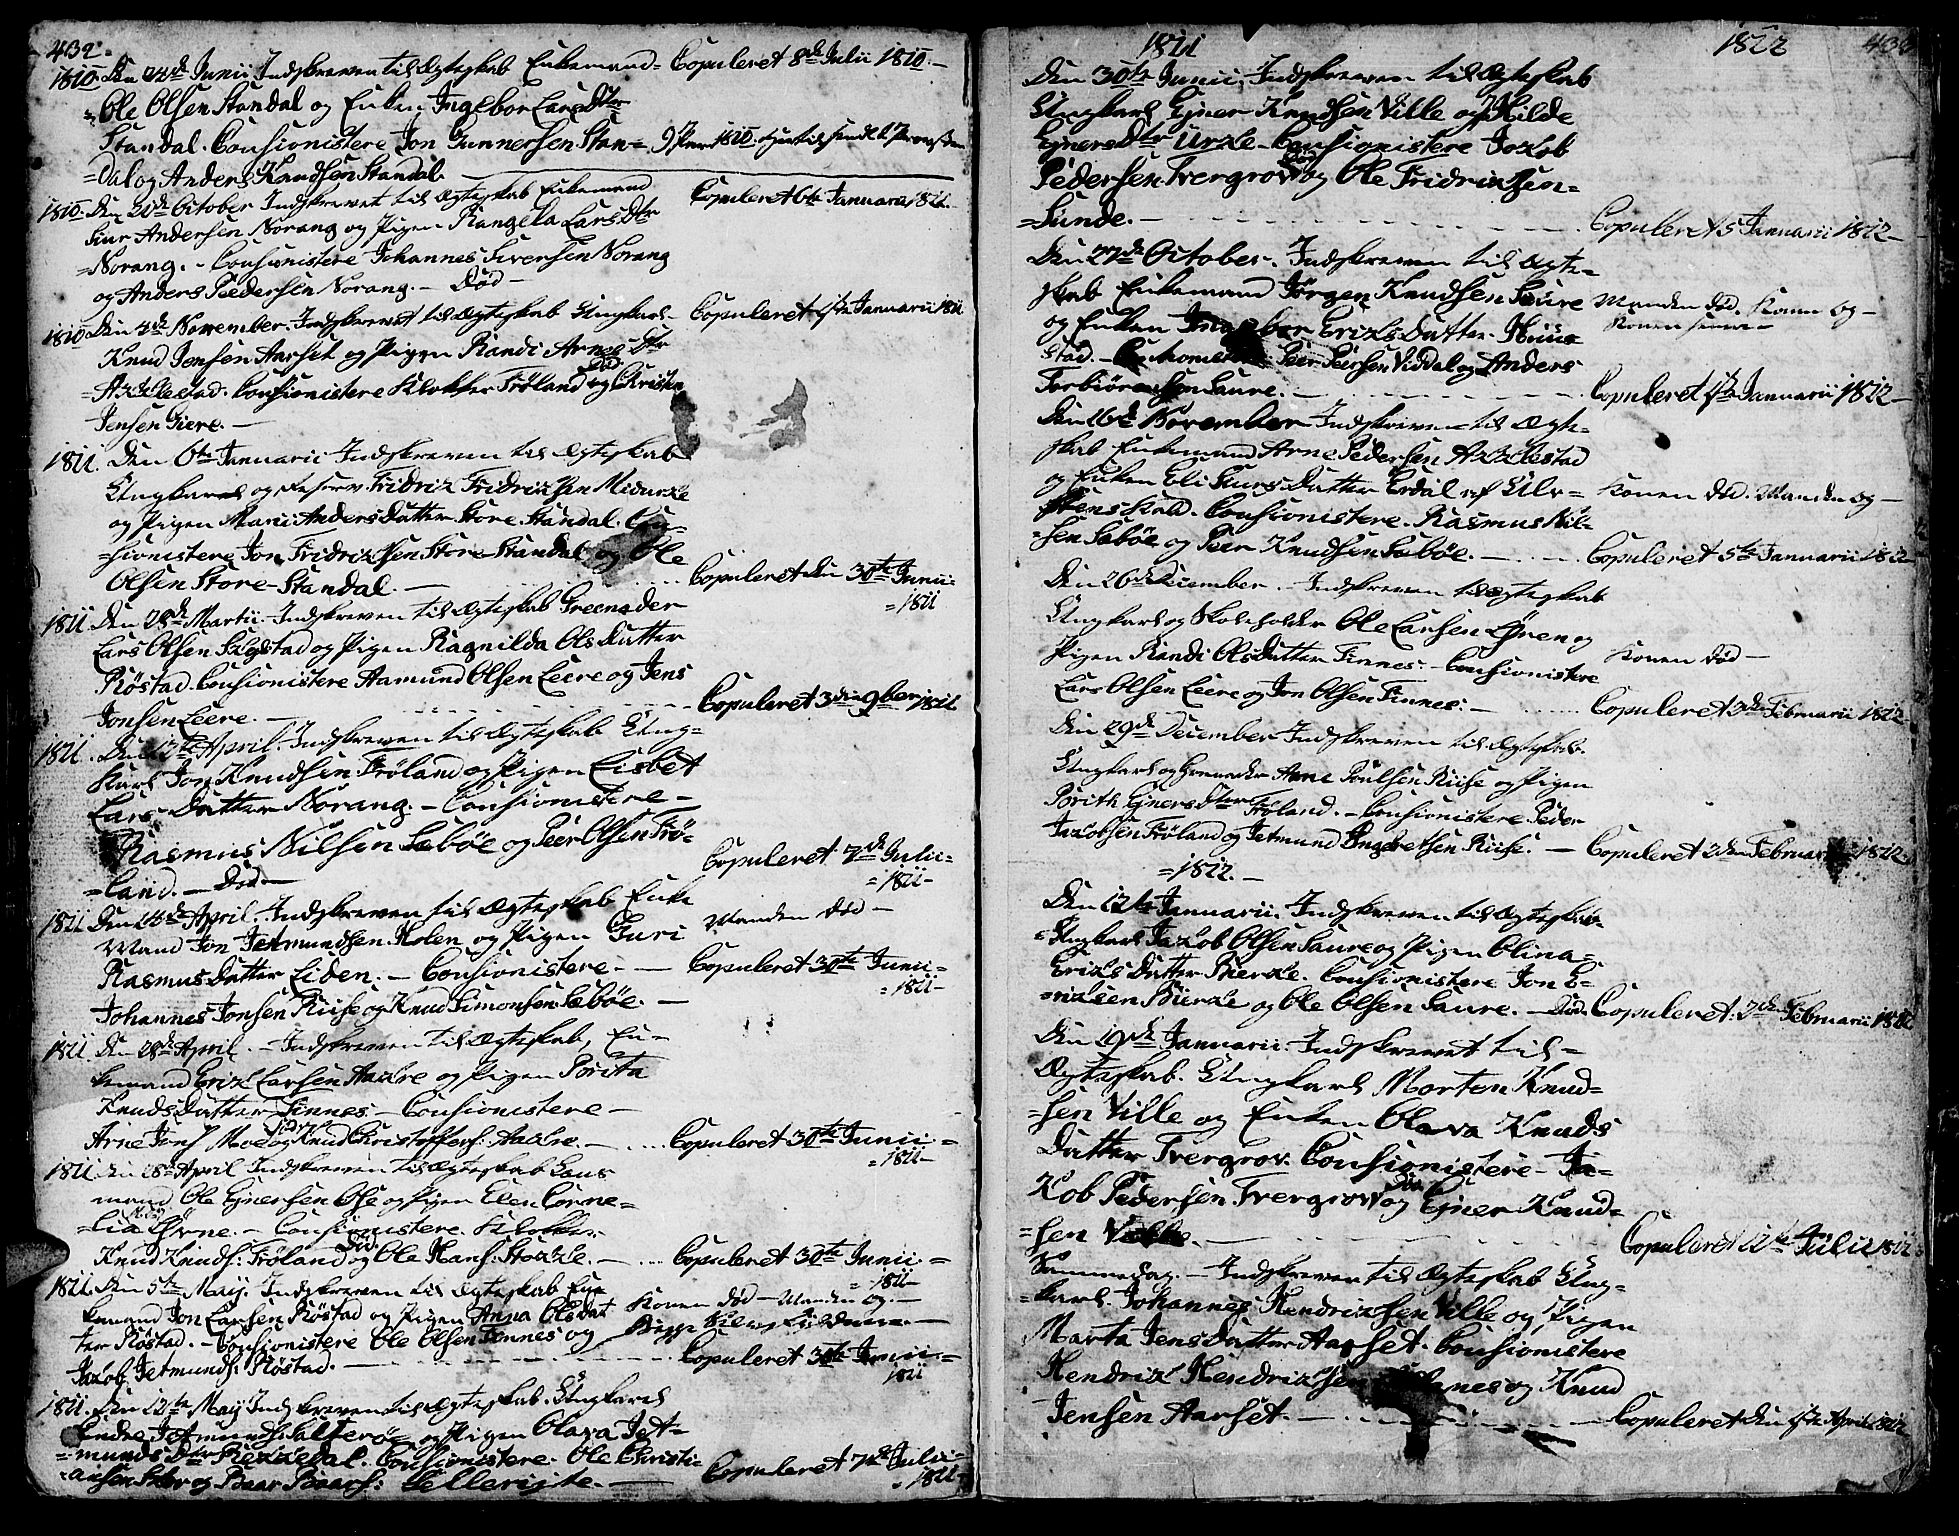 432
1810. Den 24de Junii Indskreven til Ægteskab Enkemand= Copuleret 8de Julii 1810.
Ole Olsen Standal og Enken Ingebor Lars Dtr
Standal. Cousionistere Jon Gunnersen Stan=
=dal og Anders Knudsen Standal.
1810. Den 21de October Indskrevet til Ægteskab Enkemand Copuleret 6te Januarii 1811.
Siur Andersen Norang og Pigen Rangela Lars Dtr
=Norang. - Cousionistere Johannes Siversen Norang
og Anders Pedersen Norang. - Død -
1810 Den 4de November. Indskrevet til Ægteskab Ungkarl- Copuleret 1te Januarii 1811
Knud Jensen Aarset og Pigen Randi Arnes Dtr
Axlestad. Cousionistere Klokker Frøland og Christen
Død
Jensen Giere. -
1811. Den 6te Januarii Indskreven til Ægteskab
Ungkarl og Reserv. Fridrix Fridrixsen Midurke
og Pigen Marii Anders Datter Store Standal. Cou-
=sionistere Jon Fridrixsen Store Standal og Ole
Olsen Store-Standal. - Copuleret den 30te Junii=
=1811
1811. Den 28de Martii Indskreven til Ægteskab Greenader
Lars Olsen og Pigen Ragnilda Ols Datter
Røstad. Cousionistere Aamund Olsen Leere og Jens
Jonsen Leere. - Copuleret 3die 9ber 1811
1811. Den 12te April. Indskreven til Ægteskab Ung=
Karl Jon Knudsen Frøland og Pigen Lisbet
Lars-Datter Norang. - Cousionistere -
Rasmus Nilsen Sæbøe og Peer Olsen Frø=
=land. - Død - Copuleret 7de Julii=
=1811-
1811. Den 14de April. Indskreven til Ægteskab Enke
Mand Jon Jetmundsen Holen og Pigen Guri Manden Død -
Rasmus Datter Eiden. - Cousionistere - Copuleret 30te Junii=
=1811-
Johannes Jonsen Riise og Knud Simonsen Sæbøe. -
1811 Den 28de April. - Indskreven til Ægteskab, En=
kemand Erix Larsen Aackre og Pigen Porita
Knuds Datter Finnes - Cousionistere -
Arne Jons. Moe og Knud Christoffers. Aackre. - Copuleret 30te Junii=
=1811-
1811. Den 28de April Indskreven til Ægteskab Lans
mand Ole Ejnersen Ose og Pigen Elen Corne=
=lia Ørne. - Cousionistere. Klokker
Knud Knuds. Frøland og Ole Hans. Stokke. - Copuleret 30te Junii=
Død
=1811-
1811. Den 5te Maij. Indskreven til Ægteskab Enke
kemand Jon Larsen Røstad og Pigen Anna Olsdat Konen død - Manden og -
ter Røstad. - Cousionistere Ole Olsen Finnes og
Jacob Jetmunds. Røstad. - Copuleret 30te Junii=
1811
1811. Den 12te Maij Indskreven til Ægteskab. Ungkarl
Endre Jetmunds. Salterøe og Pigen Olava Jet=
=munds Dtr Rekkedal. Cousionistere. Ole Christi=
=ansen Skor og Baar Baars: Lillerigte. - Copuleret 7de Julii=
=1811-
1811 1822 433
Den 30te Junii, Indskreven til Ægteskab
Ungkarl Ejner Knudsen Ville og Hilde
Ejners Dtr Urke - Cousionistere Jacob
Pedersen Trergrov og Ole Fridrixsen=
Død
=Sunde. - Copuleret 5 Januarii 1812-
Den 27de October. Indskreven til Ægte=
skab Enkemand Jørgen Knudsen Saure Manden død. Konen og -
og Enken Ingebor Erixs Datter Huus
stad. - Cousionistere Peer Peersen Viddal og Anders
Torbiørnsen Saure. - Copuleret 1te Januarii 1812-
Den 16de November Indskreven til Ægte=
skab Enkemand Arne Pedersen Axlestad
og Enken Eli Siurs Datter Erdal af Ulv= Konen død. Manden og -
Stens Kald. Cousionistere. Rasmus Nil=
sen Sæbøe og Peer Knudsen Sæbøe. - Copuleret 5te Januarii 1812-
Den 26de December. - Indskreven til Ægteskab
Ungkarl og Skoleholder Ole Larsen Løren og
Pigen Randi Ols Datter Finnes. - Cousionistere Konen død -
Lars Olsen Leere og Jon Olsen Finnes: - Copuleret 3de Februarii 1812-
Den 29de December Indskreven til Ægteskab.
Ungkarl og Greenader Arne Poulsen Riise og Pigen
Porith Ejners Dtter Frøland. - Cousionistere Peder
Jacobsen Frøland og Jetmund Ingebretsen Riise. - Copuleret 2den Februarii 1812-
=1812. -
Den 12te Januarii. Indskreven til Ægteskab
=Ungkarl Jacob Olsen Saure og Pigen Olina=
Erixs Datter Bierke. Cousionistere Jon E=
=rixsen Bierke og Ole Olsen Saure. - Død. Copuleret: 2den Februarii 1812
Den 19de Januarii. Indskrevet til=
Ægteskab. Ungkarl Morten Knud=
=sen Ville og Enken Olava Knuds
Datter Trergrov. Cousionistere - Ja=
Kob Pedersen Trergrov og Ejner Knud=
Død
=sen Ville. - Copuleret 12te Julii 1812
Sammedag. - Indskreven til Ægteskab Ung=
=karl. Johannes Hendrixsen Ville og Pigen
Marta Jens Datter Aarset. Cousionistere
Hendrix Hendrixsen og Knud
Jensen Aarset. - Copuleret den 1te April 1812